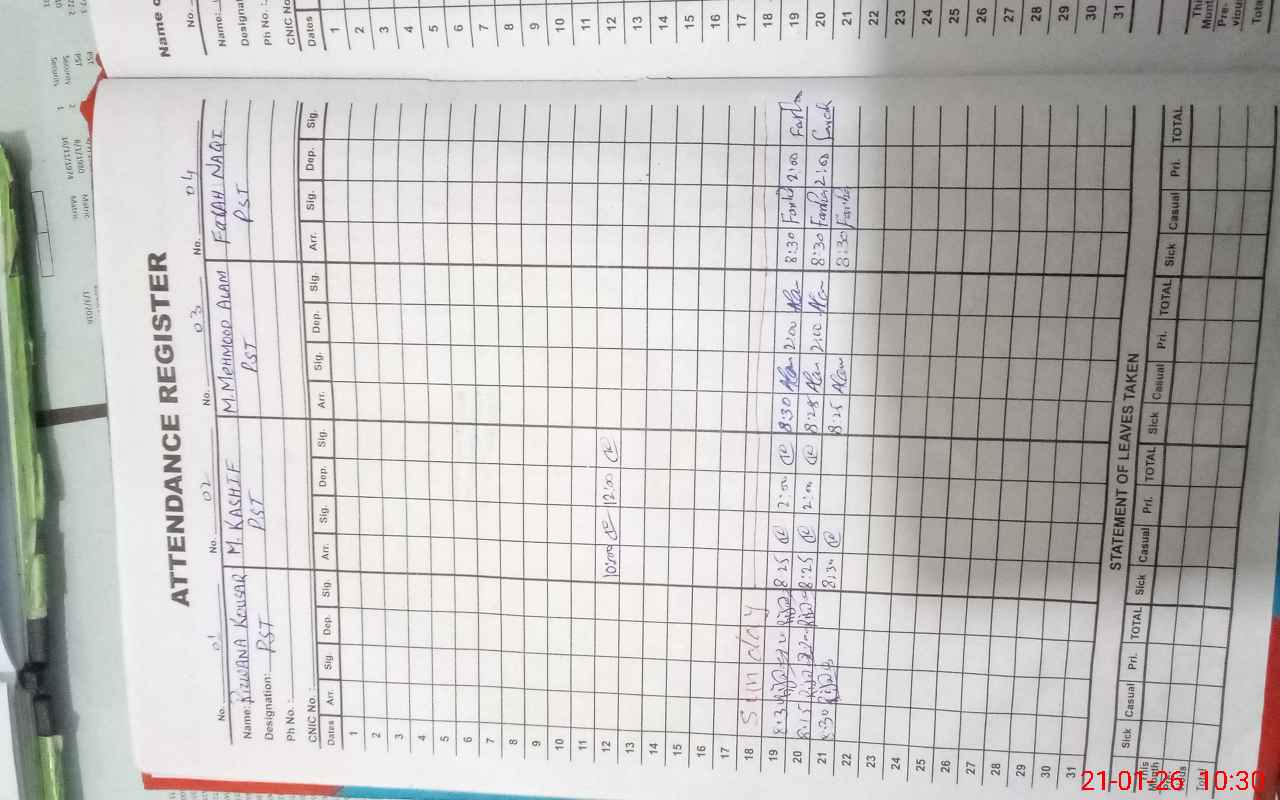 ATTENDANCE REGISTER
No. 01 No. 02 No. 03 No. 04
Name: RIZWANA KOUSAR M. KASHIF M. MEHMOOD ALAM FARAH NAQI
Designation: PST PST PST PST
Ph No. :
CNIC No. :
Dates Arr. Sig. Dep. Sig. Arr. Sig. Dep. Sig. Arr. Sig. Dep. Sig. Arr. Sig. Dep. Sig.
1
2
3
4
5
6
7
8
9
10
11
12 10:00 12:00
13
14
15
16
17
18 Sunday
19 8:30 8:25 2:00 8:30 Alam 2:00 Alam 8:30 Farha 2:00 Farha
20 8:15 8:25 2:00 8:28 Alam 2:00 Alam 8:30 Farha 2:00 Farah
21 8:30 8:30 8:25 Alam 8:30 Farha
22
23
24
25
26
27
28
29
30
31
STATEMENT OF LEAVES TAKEN
Sick Casual Pri. TOTAL Sick Casual Pri. TOTAL Sick Casual Pri. TOTAL Sick Casual Pri. TOTAL
This Month
Total
Name o
No.
Name:
Design
Ph No. :
CNIC
Dates
1
2
3
4
5
6
7
8
9
10
11
12
13
14
15
16
17
18
19
20
21
22
23
24
25
26
27
28
29
30
31
This
Month
Pre-
vious
Total
21-01-26 10:30